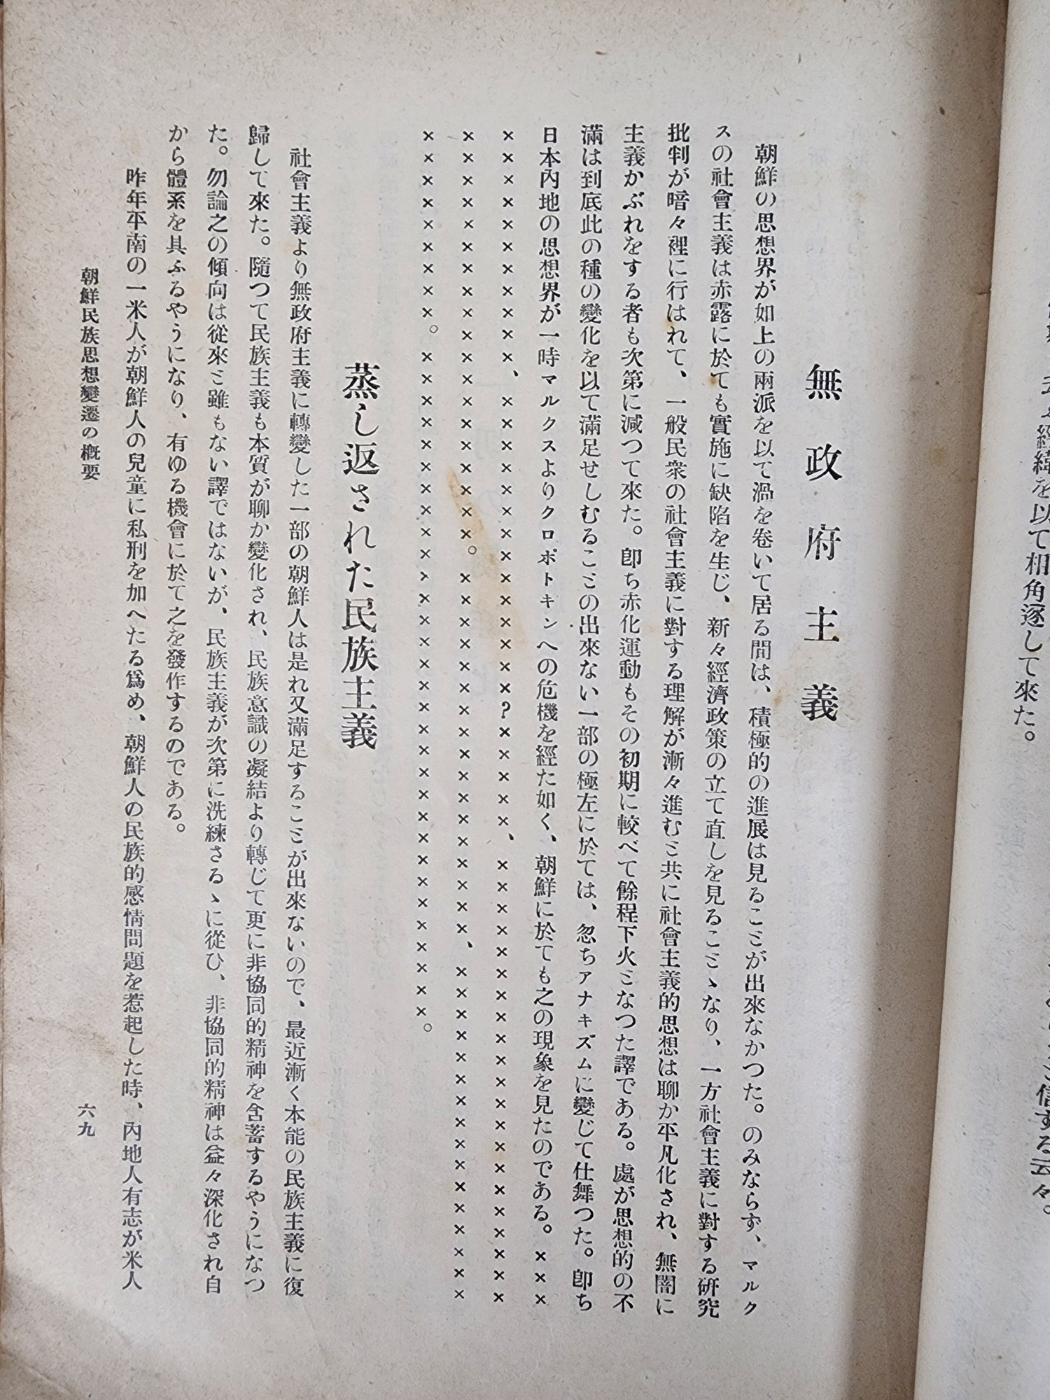 經緯を以て相角逐して來た。
信する云々。
無政府主義
朝鮮の思想界が如上の兩派を以て渦を卷いて居る間は、積極的の進展は見るこミが出來なかつた。のみならず、マルク
スの社會主義は赤露に於ても實施に缺陷を生じ、新々經濟政策の立て直しを見るこミヽなり、一方社會主義に對する硏究
批判が暗々裡に行はれて、一般民衆の社會主義に對する理解が漸々進むミ共に社會主義的思想は聊か平凡化され、無闇に
主義かぶれをする者も次第に減つて來た。卽ち赤化運動もその初期に較べて餘程下火ミなつた譯である。處が思想的の不
滿は到底此の種の變化を以て滿足せしむるこミの出來ない一部の極左に於ては、忽ちアナキズムに變じて仕舞つた。卽ち
日本內地の思想界が一時マルクスよりクロポトキンへの危機を經た如く、朝鮮に於ても之の現象を見たのである。×××
×××××××××××、××××××××××××××?×××××、××××××××××××××××××××
×××××××××××××××××××。×××××××××××××××××、××××××××××××××××
×××××××××。××××××××××××××××××××××××××××××。
蒸し返された民族主義
社會主義より無政府主義に轉變した一部の朝鮮人は是れ又滿足するこミが出來ないので、最近漸く本能の民族主義に復
歸して來た。隨つて民族主義も本質が聊か變化され、民族意識の凝結より轉じて更に非協同的精神を含蓄するやうになつ
た。勿論之の傾向は從來ミ雖もない譯ではないが、民族主義が次第に洗練さるヽに從ひ、非協同的精神は益々深化され自
から體系を具ふるやうになり、有ゆる機會に於て之を發作するのである。
昨年平南の一米人が朝鮮人の兒童に私刑を加へたる爲め、朝鮮人の民族的感情問題を惹起した時、內地人有志が米人
朝鮮民族思想變遷の槪要
六九